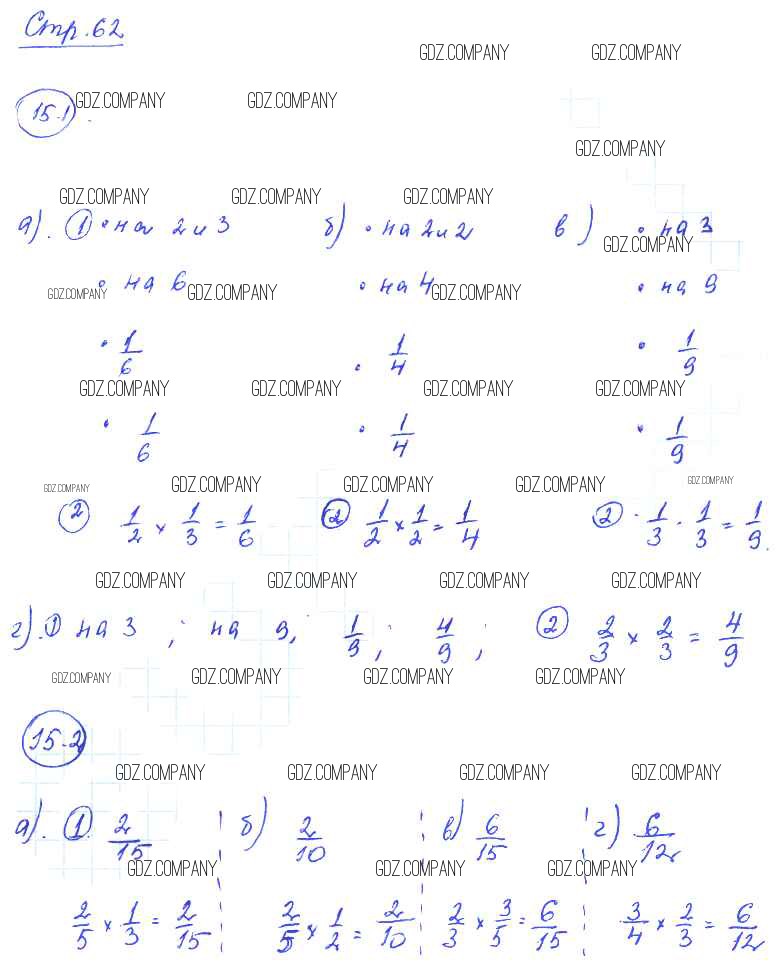 Стр. 62
GDZ.COMPANY GDZ.COMPANY
15.1 GDZ.COMPANY GDZ.COMPANY
GDZ.COMPANY
GDZ.COMPANY GDZ.COMPANY GDZ.COMPANY
а). ① • на 2 и 3 б) • на 2 и 2 в) • на 3
GDZ.COMPANY
• на 6 • на 4 • на 9
GDZ.COMPANY GDZ.COMPANY GDZ.COMPANY
• 1/6 • 1/4 • 1/9
GDZ.COMPANY GDZ.COMPANY GDZ.COMPANY GDZ.COMPANY
• 1/6 • 1/4 • 1/9
GDZ.COMPANY GDZ.COMPANY GDZ.COMPANY GDZ.COMPANY GDZ.COMPANY
② 1/2 × 1/3 = 1/6 ② 1/2 × 1/2 = 1/4 ② • 1/3 · 1/3 = 1/9.
GDZ.COMPANY GDZ.COMPANY GDZ.COMPANY GDZ.COMPANY
г). ① на 3 ; на 9, 1/9 ; 4/9 ; ② 2/3 × 2/3 = 4/9
GDZ.COMPANY GDZ.COMPANY GDZ.COMPANY GDZ.COMPANY
15.2
GDZ.COMPANY GDZ.COMPANY GDZ.COMPANY GDZ.COMPANY
а). ① 2/15 б) 2/10 в) 6/15 г) 6/12
GDZ.COMPANY GDZ.COMPANY GDZ.COMPANY
2/5 × 1/3 = 2/15 2/5 × 1/2 = 2/10 2/3 × 3/5 = 6/15 3/4 × 2/3 = 6/12